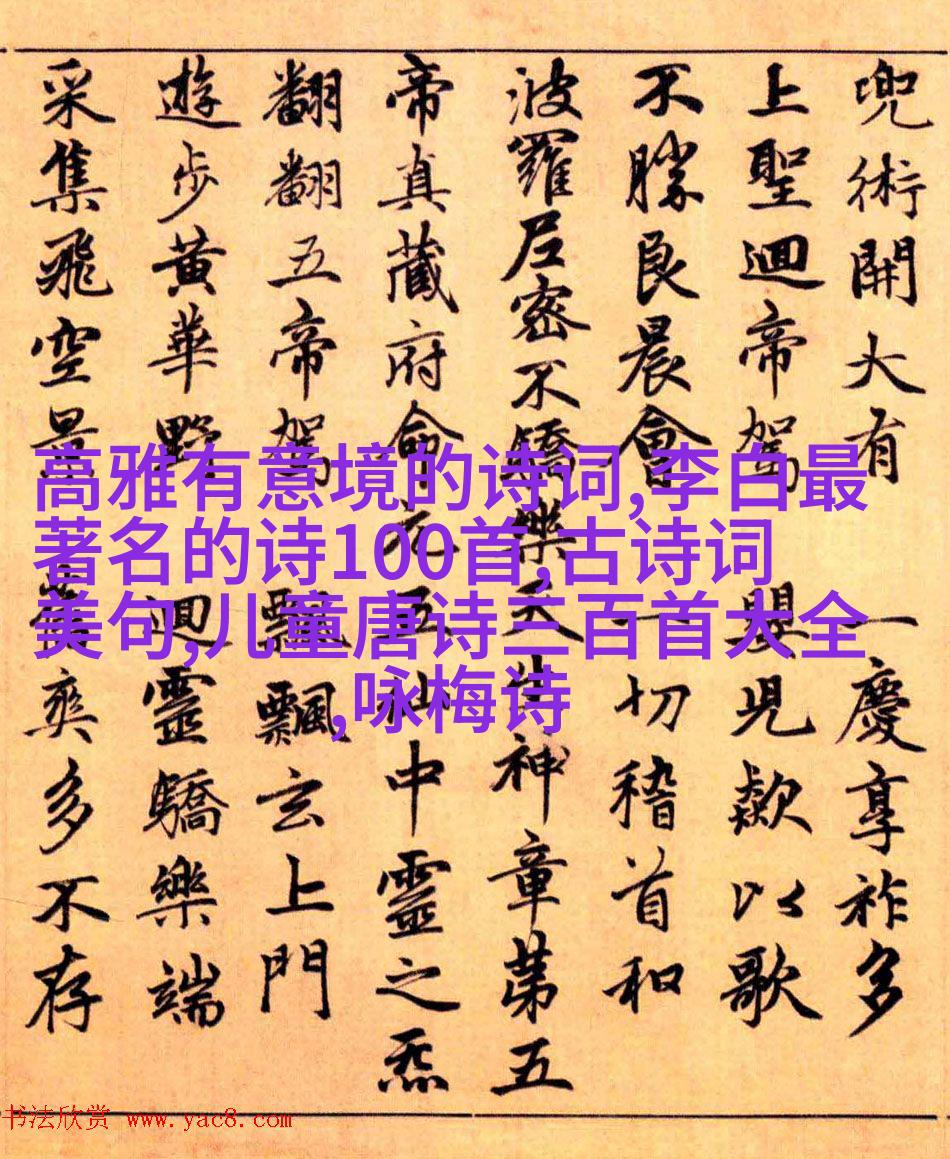 兜術開大有 一慶享祚多
上聖迴帝駕 嬰児歎以歌
不勝良晨會 一切稽首和
波羅尼密不驕樂天生神章第五
帝真藏府命元五仙中靈之炁
翻翻五帝駕 飄飄玄上門
遊步黃華野 迴靈驕樂端
采集飛空景 爽多不存
高雅有意境的诗词,李白最
著名的诗100首,古诗词
美句,儿童唐诗三百首大全
,咏梅诗
书法欣赏 www.yac8.com